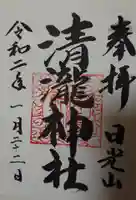 奉拝
日光山
清瀧神社
令和二年一月二十二日